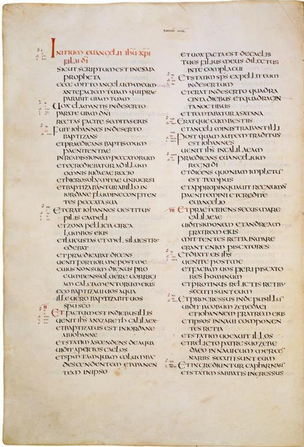 INITIUM EUANGELII IHU XPI
FILII DI
SICUT SCRIPTUM EST IN ESAIA
PROPHETA
ECCE MITTO ANGELUM MEUM
ANTE FACIEM TUAM QUI PRAE
PARABIT UIAM TUAM
UOX CLAMANTIS IN DESERTO
PARATE UIAM DNI
RECTAS FACITE SEMITAS EIUS
FUIT IOHANNES IN DESERTO
BAPTIZANS
ET PRAEDICANS BAPTISMUM
PAENITENTIAE
IN REMISSIONEM PECCATORUM
ET EGREDIEBATUR AD ILLUM
OMNIS IUDAEAE REGIO
ET HIEROSOLYMITAE UNIUERSI
ET BAPTIZABANTUR AB ILLO IN
IORDANE FLUMINE CONFITEN
TES PECCATA SUA
ET ERAT IOHANNES UESTITUS
PILIS CAMELI
ET ZONA PELLICIA CIRCA
LUMBOS EIUS
ET LOCUSTAS ET MEL SILUESTRE
EDEBAT
ET PRAEDICABAT DICENS
UENIT FORTIOR ME POST ME
CUIUS NON SUM DIGNUS PRO
CUMBENS SOLUERE CORRIGI
AM CALCIAMENTORUM EIUS
EGO BAPTIZAUI UOS AQUA
ILLE UERO BAPTIZABIT UOS
SPU SCO
ET FACTUM EST IN DIEBUS ILLIS
UENIT IHS A NAZARETH GALILAEAE
ET BAPTIZATUS EST IN IORDANE
AB IOHANNE
ET STATIM ASCENDENS DE AQUA
UIDIT APERTOS CAELOS
ET SPM TAMQUAM COLUMBAM
DESCENDENTEM ET MANENTEM
IN IPSO
ET UOX FACTA EST DE CAELIS
TU ES FILIUS MEUS DILECTUS
IN TE CONPLACUI
ET STATIM SPS EXPELLIT EUM
IN DESERTUM
ET ERAT IN DESERTO QUADRA
GINTA DIEBUS ET QUADRAGIN
TA NOCTIBUS
ET TEMTABATUR A SATANA
ERATQUE CUM BESTIIS
ET ANGELI MINISTRABANT ILLI
POSTQUAM AUTEM TRADITUS
EST IOHANNES
UENIT IHS IN GALILAEAM
PRAEDICANS EUANGELIUM
REGNI DI
ET DICENS QUONIAM IMPLETUM
EST TEMPUS
ET ADPROPINQUAUIT REGNUM DI
PAENITEMINI ET CREDITE
EUANGELIO
ET PRAETERIENS SECUS MARE
GALILAEAE
UIDIT SIMONEM ET ANDREAM
FRATREM EIUS
MITTENTES RETIA IN MARE
ERANT ENIM PISCATORES
ET DIXIT EIS IHS
UENITE POST ME
ET FACIAM UOS FIERI PISCATO
RES HOMINUM
ET PROTINUS RELICTIS RETIBUS
SECUTI SUNT EUM
ET PROGRESSUS INDE PUSILLUM
UIDIT IACOBUM ZEBEDAEI
ET IOHANNEM FRATREM EIUS
ET IPSOS IN NAUI CONPONEN
TES RETIA
ET STATIM UOCAUIT ILLOS
ET RELICTO PATRE SUO ZEBE
DAEO IN NAUI CUM MERCEN
NARIIS SECUTI SUNT EUM
ET INGREDIUNTUR CAPHARNAUM
ET STATIM SABBATIS INGRESSUS